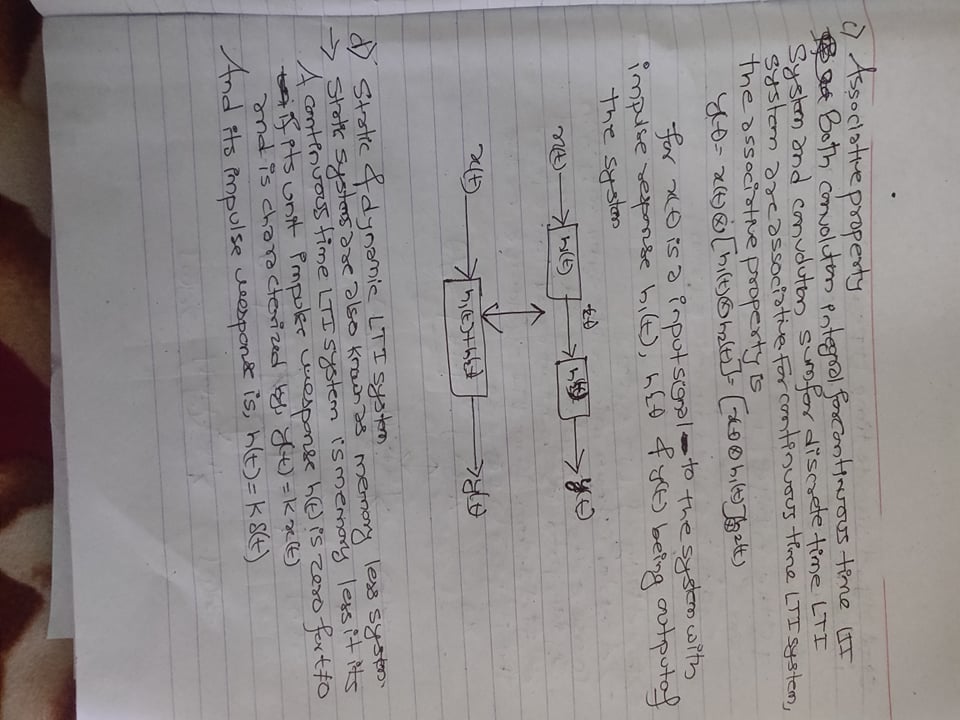 c) Associative property
Both convolution integral for continuous time LTI
System and convolution sum for discrete time LTI
system are associative. For continuous time LTI system,
the associative property is
y(t) = x(t)⊗[h1(t)⊗h2(t)] = [x(t)⊗h1(t)]⊗h2(t)
for x(t) is a input signal to the system with
impulse response h1(t), h2(t) & y(t) being output of
the system
x(t) → h1(t) → h2(t) → y(t)
x(t) → h1(t)+h2(t) → y(t)
d) Static & dynamic LTI system
→ Static systems are also known as memory less system.
A continuous time LTI system is memory less it its
if its unit impulse response h(t) is zero for t≠0
and is characterized by, y(t) = Kx(t)
And its impulse response is, h(t) = Kδ(t)